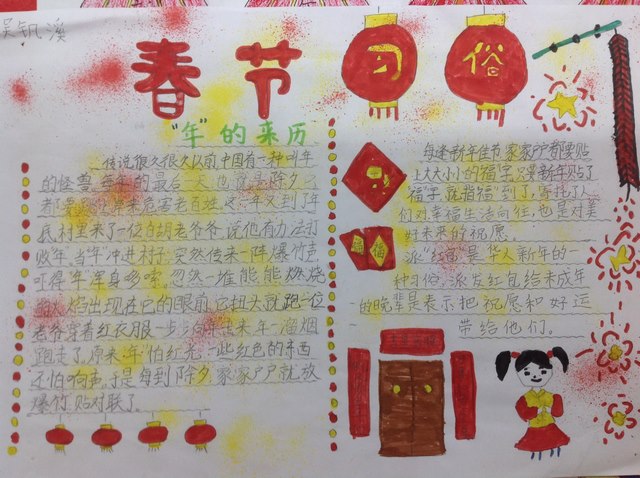 吴
溪
春节习俗
"年"的来历
传说很久很久以前中国有一种叫年
的怪兽,每年的最后一天也就是除夕
都要 出来危害老百姓这一年又到了年
民村里来了一位白胡老爷爷,说他有办法打
败年,当"年"冲进村子,突然传来一阵爆竹声
吓得"年"浑身多嗦。忽然一堆能能燃烧
的火焰出现在它的眼前,它扭头就跑一位
老爷穿着红衣服一步步 过来年一溜烟
跑走了,原来"年"怕红光,一些红色的东西
还怕响声,于是每到除夕,家家户户就放
爆竹,贴对联了。
每逢新年佳节,家家户户都要贴
上大大小小的"福"字 是新年贴了
"福"字,就指福"到"了,寄托了人
们对幸福生活向往,也是对美
好未来的祝愿。
派"红包"是华人新年的一
种习俗,派发红包给未成年
的晚辈是表示把祝愿和好运
带给他们。
福